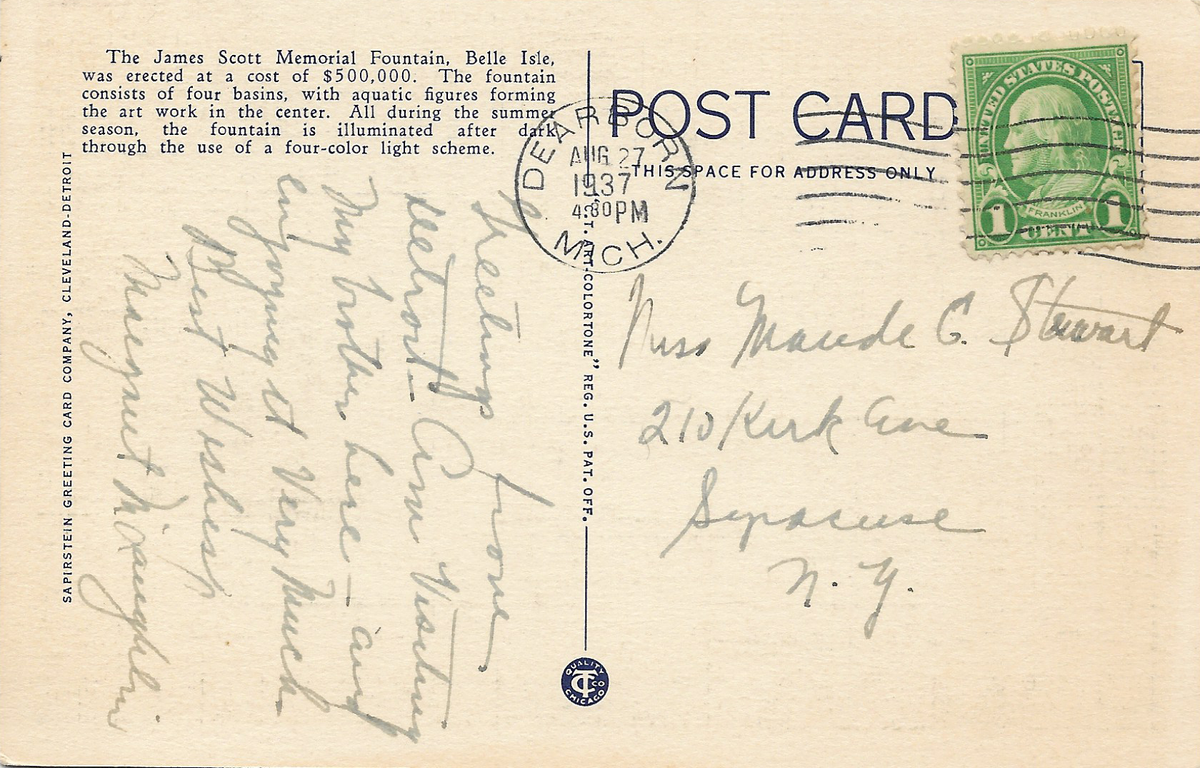 The James Scott Memorial Fountain, Belle Isle,
was erected at a cost of $500,000. The fountain
consists of four basins, with aquatic figures forming
the art work in the center. All during the summer
season, the fountain is illuminated after dark
through the use of a four-color light scheme.
SAPIRSTEIN GREETING CARD COMPANY, CLEVELAND-DETROIT
Greetings from
Detroit - Am Visiting
My brother here - and
enjoying it Very Much
Best Wishes
Margaret McLaughlin
POST CARD
THIS SPACE FOR ADDRESS ONLY
DEARBORN
AUG 27
1937
PM
MICH.
C.T. ART-COLORTONE" REG. U.S. PAT. OFF.
QUALITY
CT CO
CHICAGO
UNITED STATES POSTAGE
FRANKLIN
1 CENT 1
Miss Maude C. Stewart
210 Kirk Ave
Syracuse
N. Y.